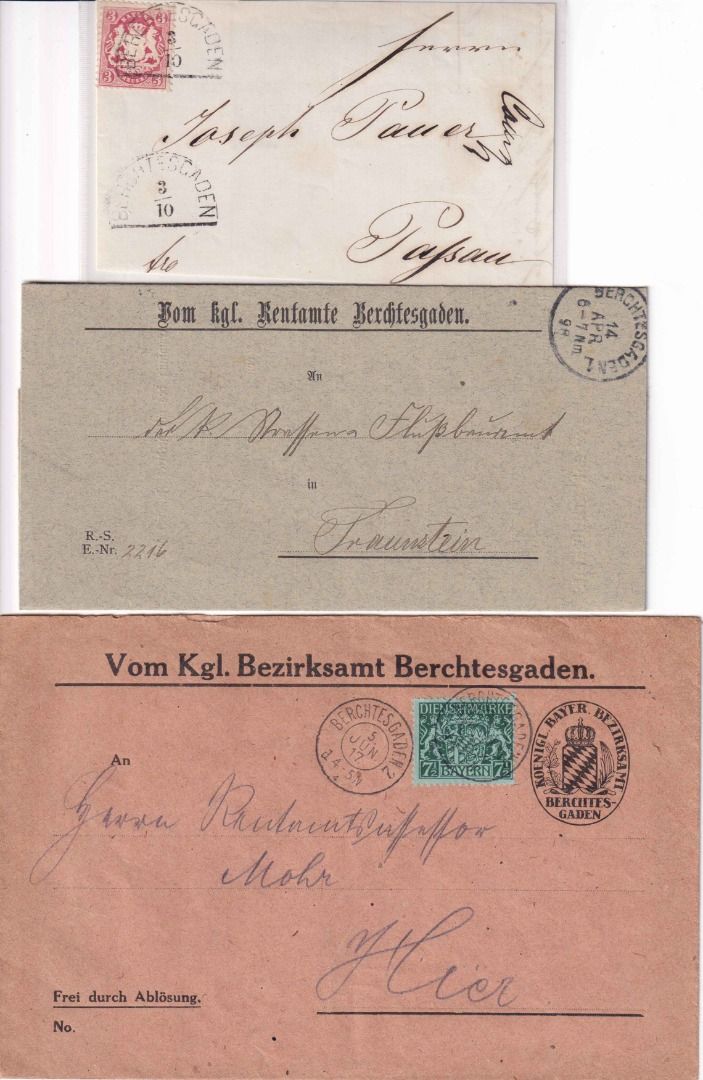 3 3
3 3
BERCHTESGADEN
3
10
Herrn
Joseph Pauer
BERCHTESGADEN
3
10
Passau
fro
Vom kgl. Rentamte Berchtesgaden.
BERCHTESGADEN 1.
14
APR
6-7 Nm
98
An
das K Strassen & Flußbauamt
in
R.-S.
E.-Nr. 2216
Traunstein
Vom Kgl. Bezirksamt Berchtesgaden.
BERCHTESGADEN 2
5
JUN
17
DIENSTMARKE
7½ BAYERN 7½
BERCHTESGADEN
KOENIGL. BAYER. BEZIRKSAMT
BERCHTES-
GADEN
An
Herrn Rentamtsassessor
Mohr
Hier
Frei durch Ablösung.
No.